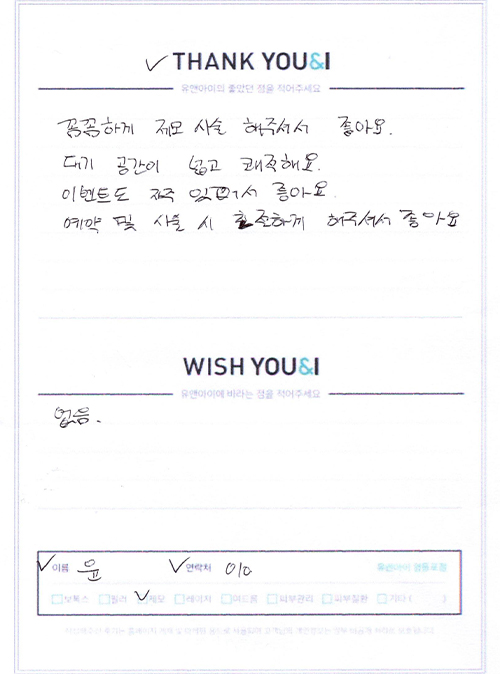 THANK YOU&I
유앤아이의 좋았던 점을 적어주세요
꼼꼼하게 제모 시술 해주셔서 좋아요.
대기 공간이 넓고 쾌적해요.
이벤트도 자주 있어서 좋아요.
예약 및 시술 시 친절하게 해주셔서 좋아요
WISH YOU&I
유앤아이에 바라는 점을 적어주세요
없음.
이름 윤 연락처 010 유앤아이 영등포점
보톡스 필러 제모 레이저 여드름 피부관리 피부질환 기타 ( )